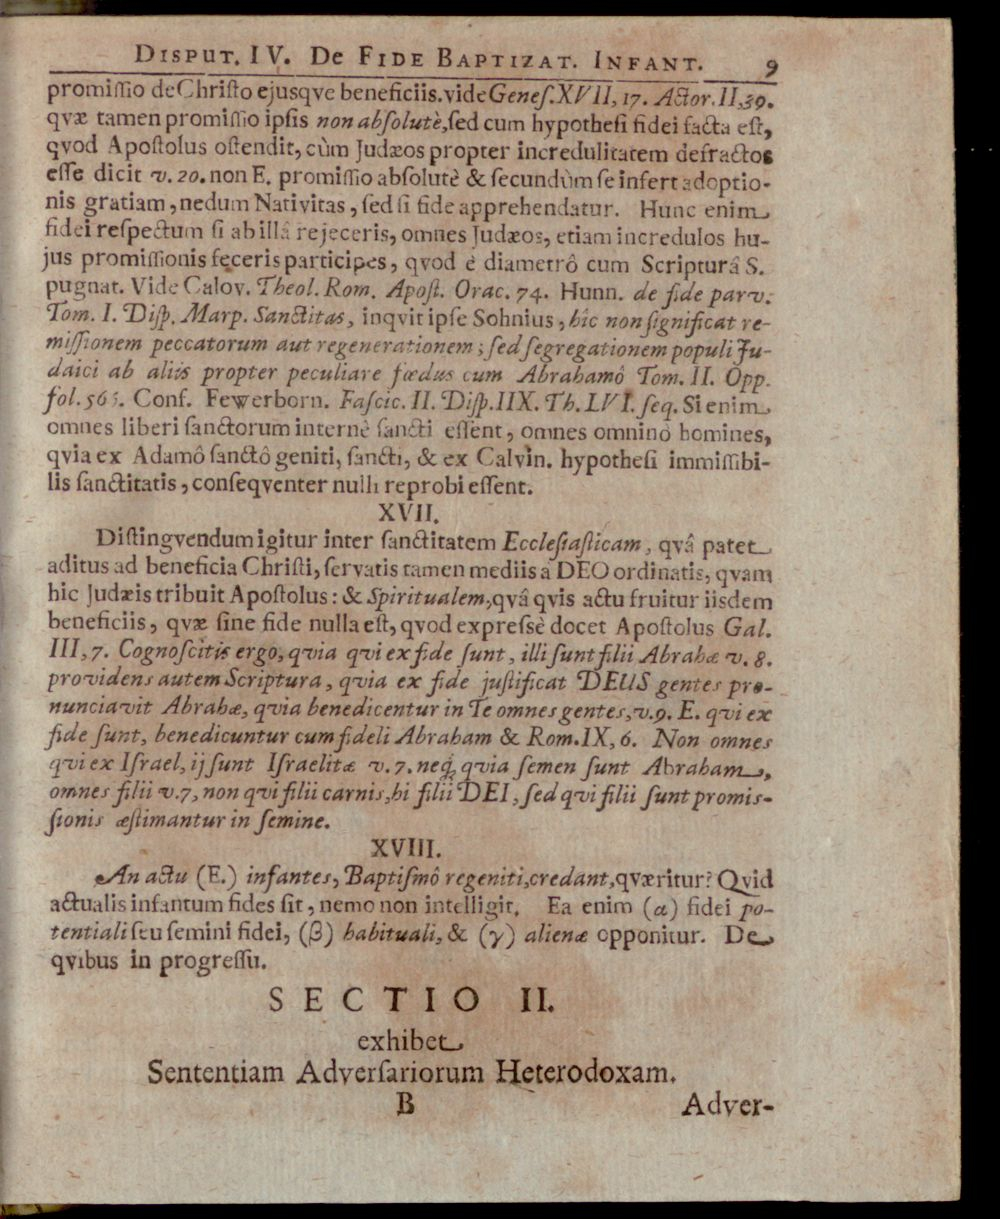 DISPUT. IV. DE FIDE BAPTIZAT. INFANT. 9
promiſſio de Chriſto ejusqve beneficiis. vide Geneſ. XVII, 17. Actor. II, 39.
qvæ tamen promiſſio ipſis non abſolutè, ſed cum hypotheſi fidei facta eſt,
qvod Apoſtolus oſtendit, cùm Judæos propter incredulitatem defractos
eſſe dicit v. 20. non E. promiſſio abſolutè & ſecundùm ſe infert adoptio-
nis gratiam, nedum Nativitas, ſed ſi fide apprehendatur. Hunc enim
fidei reſpectum ſi ab illâ rejeceris, omnes Judæos, etiam incredulos hu-
jus promiſſionis feceris participes, qvod è diametrô cum Scripturâ S.
pugnat. Vide Calov. Theol. Rom. Apoſt. Orac. 74. Hunn. de fide parv.
Tom. I. Diſp. Marp. Sanctitas, inqvit ipſe Sohnius, hîc non ſignificat re-
miſſionem peccatorum aut regenerationem; ſed ſegregationem populi Ju-
daici ab aliis propter peculiare fœdus cum Abrahamô Tom. II. Opp.
fol. 565. Conf. Fewerborn. Faſcic. II. Diſp. IIX. Th. LVI. ſeq. Si enim
omnes liberi ſanctorum internè ſancti eſſent, omnes omninò homines,
qvia ex Adamô ſanctô geniti, ſancti, & ex Calvin. hypotheſi immiſſibi-
lis ſanctitatis, conſeqventer nulli reprobi eſſent.
XVII.
Diſtingvendum igitur inter ſanctitatem Eccleſiaſticam, qvâ patet
aditus ad beneficia Chriſti, ſervatis tamen mediis à DEO ordinatis, qvam
hic Judæis tribuit Apoſtolus: & Spiritualem, qvâ qvis actu fruitur iisdem
beneficiis, qvæ ſine fide nulla eſt, qvod expreſsè docet Apoſtolus Gal.
III, 7. Cognoſcitis ergo, qvia qvi ex fide ſunt, illi ſunt filii Abrahæ v. 8.
providens autem Scriptura, qvia ex fide juſtificat DEUS gentes pro-
nunciavit Abrahæ, qvia benedicentur in Te omnes gentes, v. 9. E. qvi ex
fide ſunt, benedicuntur cum fideli Abraham & Rom. IX, 6. Non omnes
qvi ex Iſrael, ij ſunt Iſraelitæ v. 7. neq; qvia ſemen ſunt Abraham,
omnes filii v. 7, non qvi filii carnis, hi filii DEI, ſed qvi filii ſunt promiſ-
ſionis æſtimantur in ſemine.
XVIII.
An actu (E.) infantes, Baptiſmô regeniti, credant, qværitur? Qvid
actualis infantum fides ſit, nemo non intelligit. Ea enim (α) fidei po-
tentiali ſeu ſemini fidei, (β) habituali, & (γ) alienæ opponitur. De
qvibus in progreſſu.
SECTIO II.
exhibet
Sententiam Adverſariorum Heterodoxam.
B Adver-